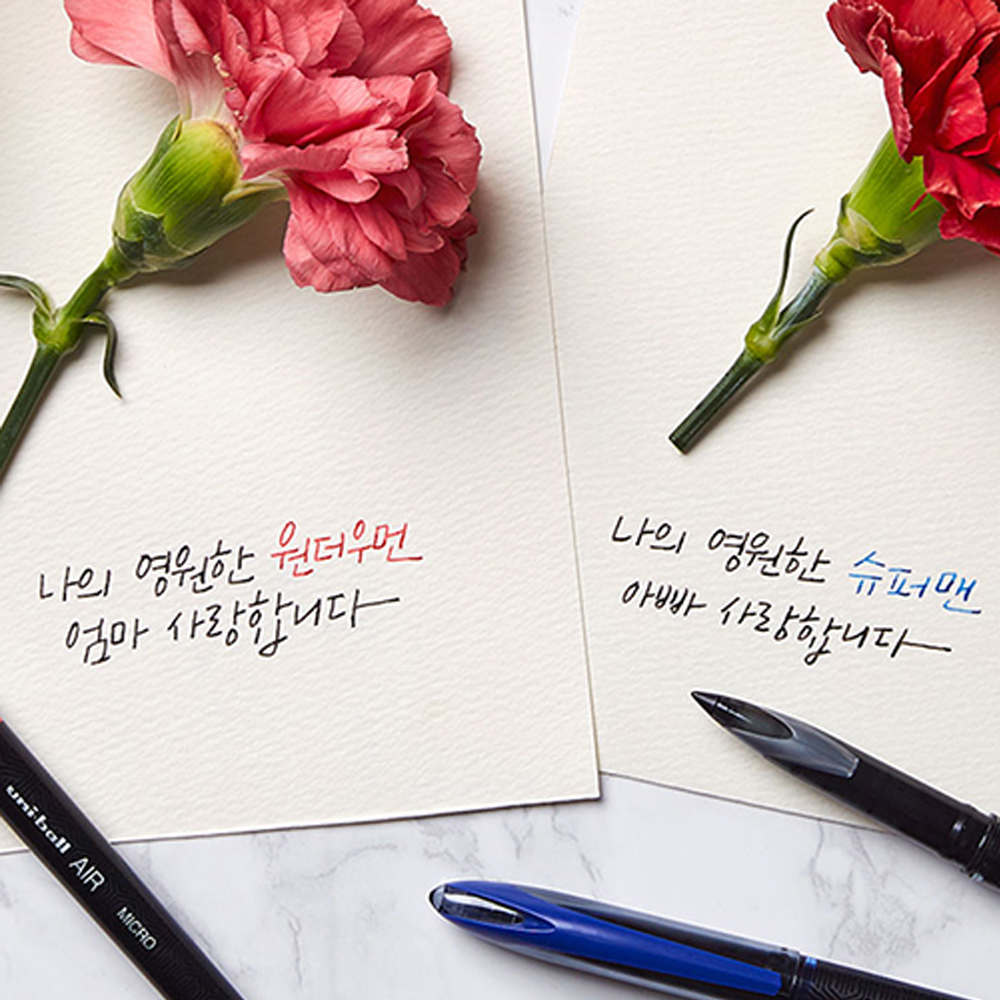 나의 영원한 원더우먼
엄마 사랑합니다
나의 영원한 슈퍼맨
아빠 사랑합니다
uni-ball AIR MICRO